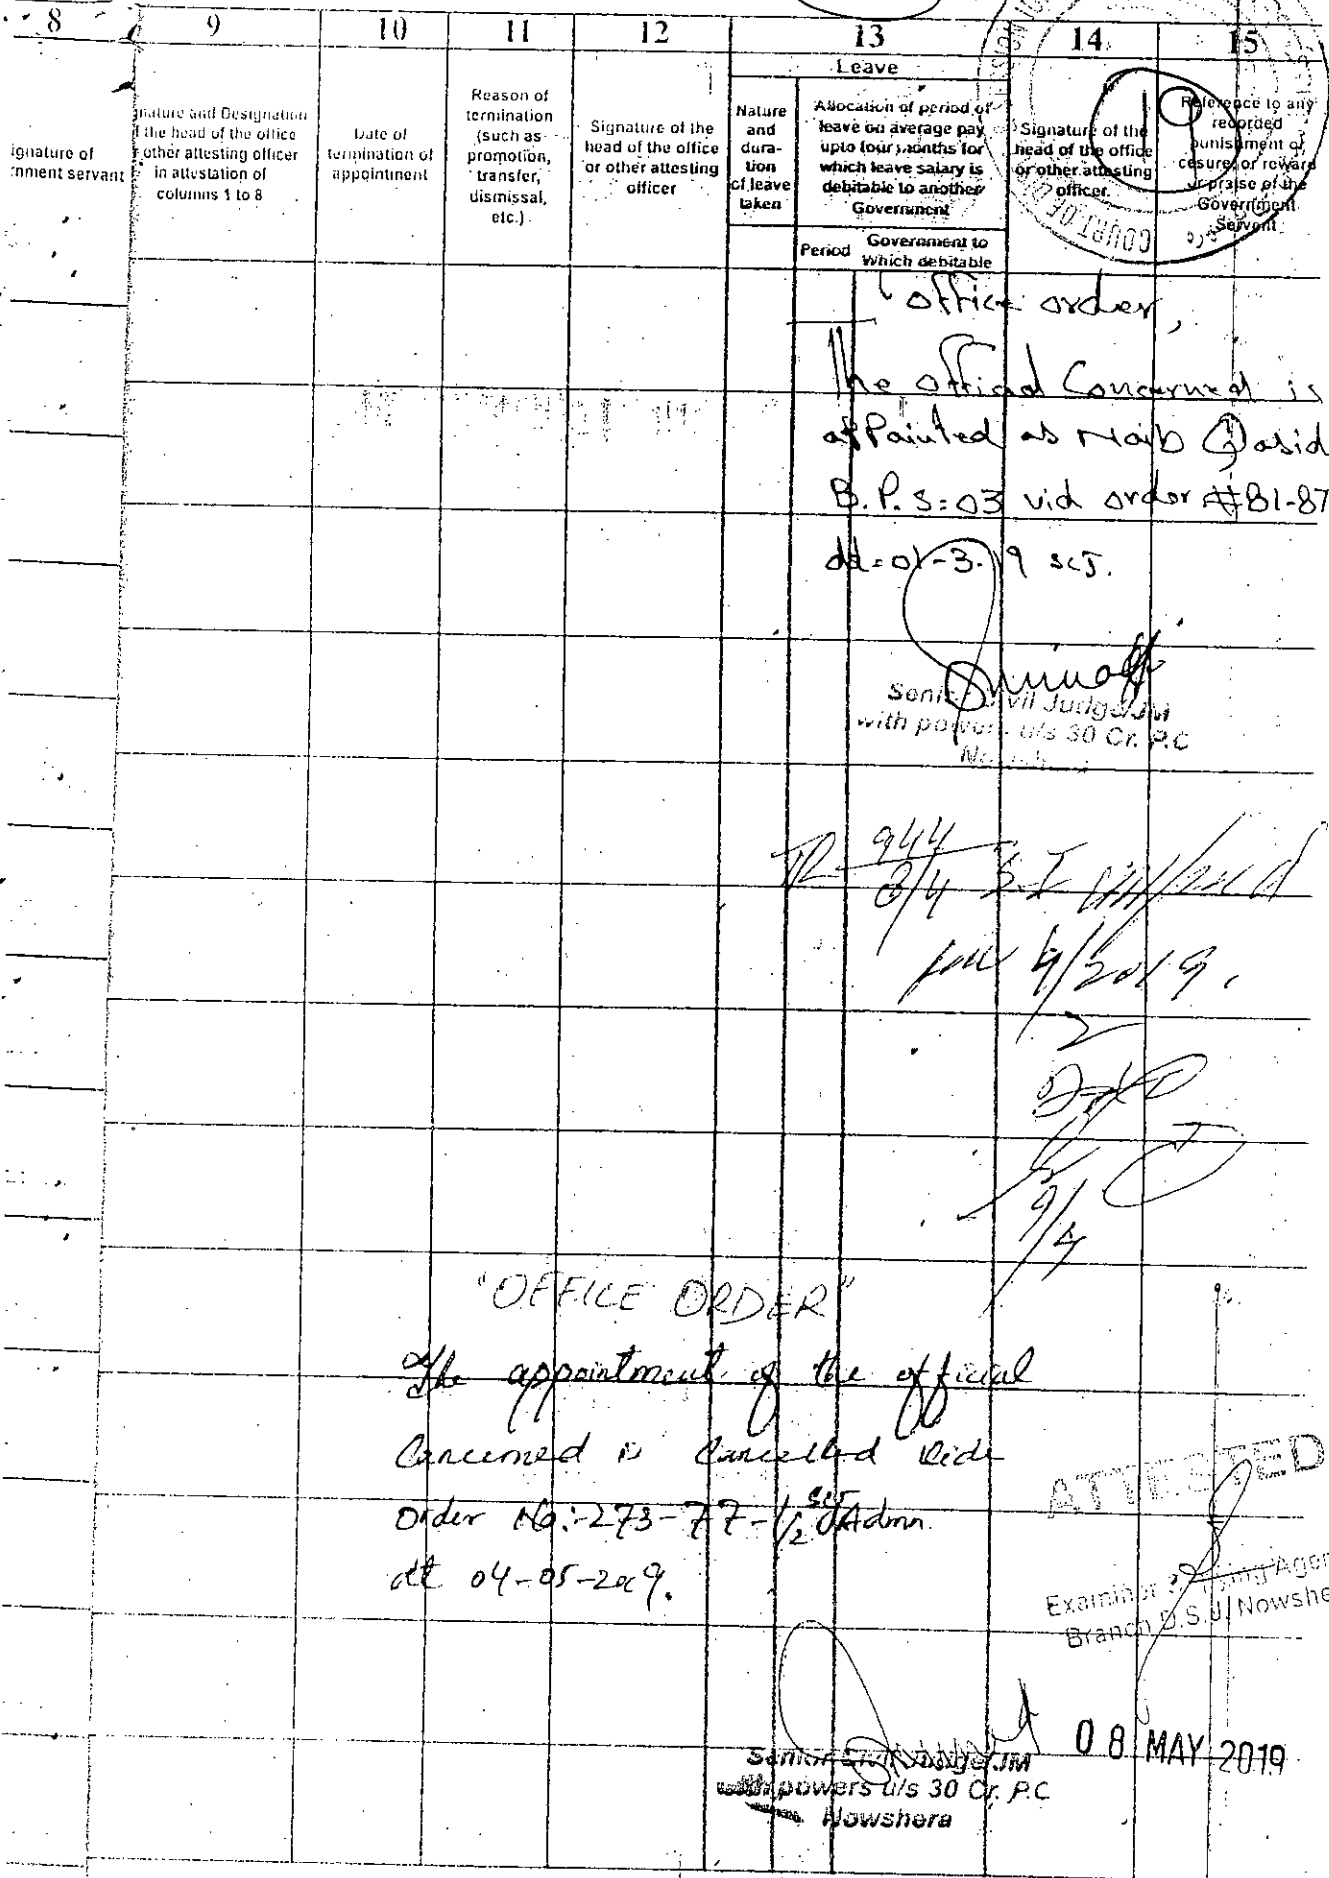 8 9 10 11 12 13 14 15
Leave
ignature of
nment servant
nature and Designation
the head of the office
other attesting officer
in attestation of
columns 1 to 8
Date of
termination of
appointment
Reason of
termination
(such as
promotion,
transfer,
dismissal,
etc.)
Signature of the
head of the office
or other attesting
officer
Nature
and
dura-
tion
of leave
taken
Allocation of period of
leave on average pay
upto four months for
which leave salary is
debitable to another
Government
Period
Government to
Which debitable
Signature of the
head of the office
or other attesting
officer.
Reference to any
recorded
punishment or
cesure, or reward
or praise of the
Government
Servent
COURT OF
office order,
The official Concerned is
appointed as Naib Qasid
B.P.S=03 vid order #81-87
dd=01-3-19 SCJ.
Senior Civil Judge/JM
with powers u/s 30 Cr. P.C
944
3/4
4/2019.
9/4
"OFFICE ORDER"
The appointment of the official
Concerned is Cancelled vide
Order No:-273-77-1/2 SCJ Admn
dt 04-05-2019.
ATTESTED
Examiner Agen
Branch D.S.J. Nowshe
08 MAY 2019
Senior Civil Judge/JM
with powers u/s 30 Cr. P.C
Nowshera